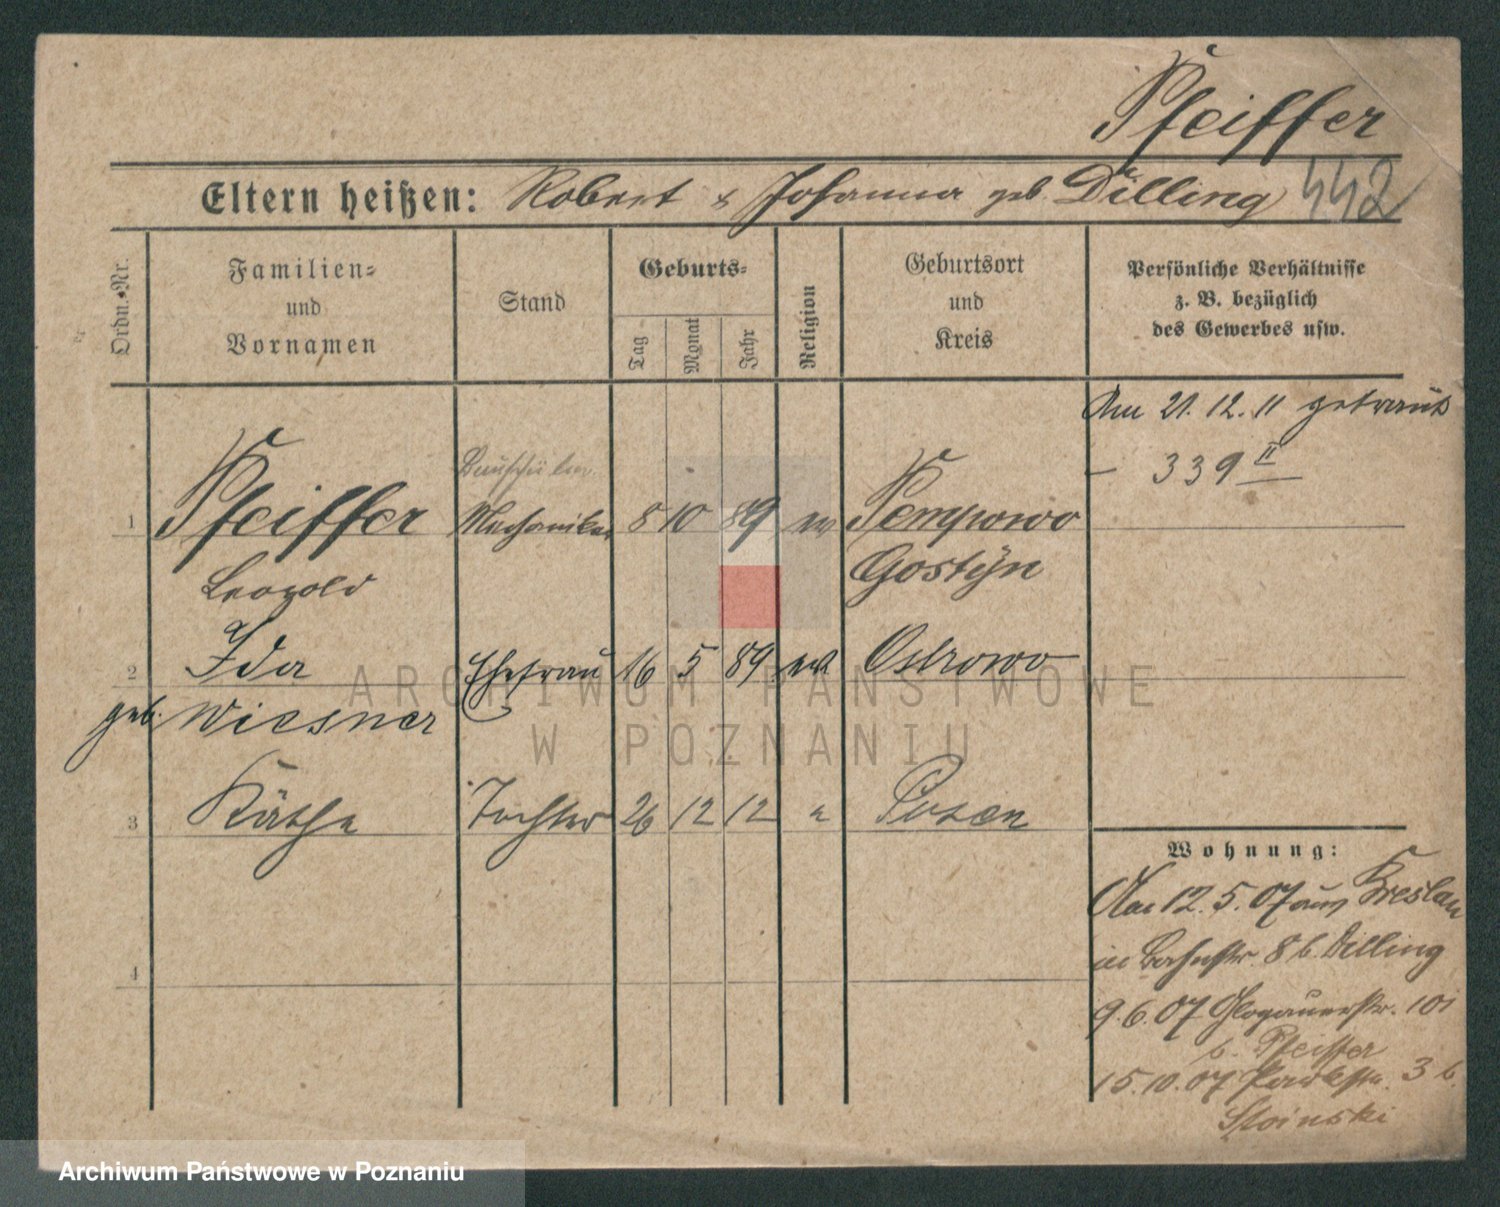 Pfeiffer
Eltern heißen: Robert & Johanna geb. Dilling 442
Ordn.-Nr.
Familien-
und
Vornamen
Stand
Geburts-
Tag
Monat
Jahr
Religion
Geburtsort
und
Kreis
Persönliche Verhältnisse
z. B. bezüglich
des Gewerbes usw.
Am 21.12.11 getraut
- 339 II
1 Pfeiffer Mechaniker 8 10 89 ev Pempowo
Leopold Gostÿn
2 Ida Ehefrau 16 5 89 ev Ostrowo
geb. Wiesner
3 Käthe Tochter 26 12 12 " Posen
4
Wohnung:
Am 12.5.07 aus Breslau
in Bahnstr. 8 b. Dilling
9.6.07 Glogauerstr. 101
b. Pfeiffer
15.10.07 Parkstr. 3 b.
Sloinski
ARCHIWUM PAŃSTWOWE
W POZNANIU
Archiwum Państwowe w Poznaniu